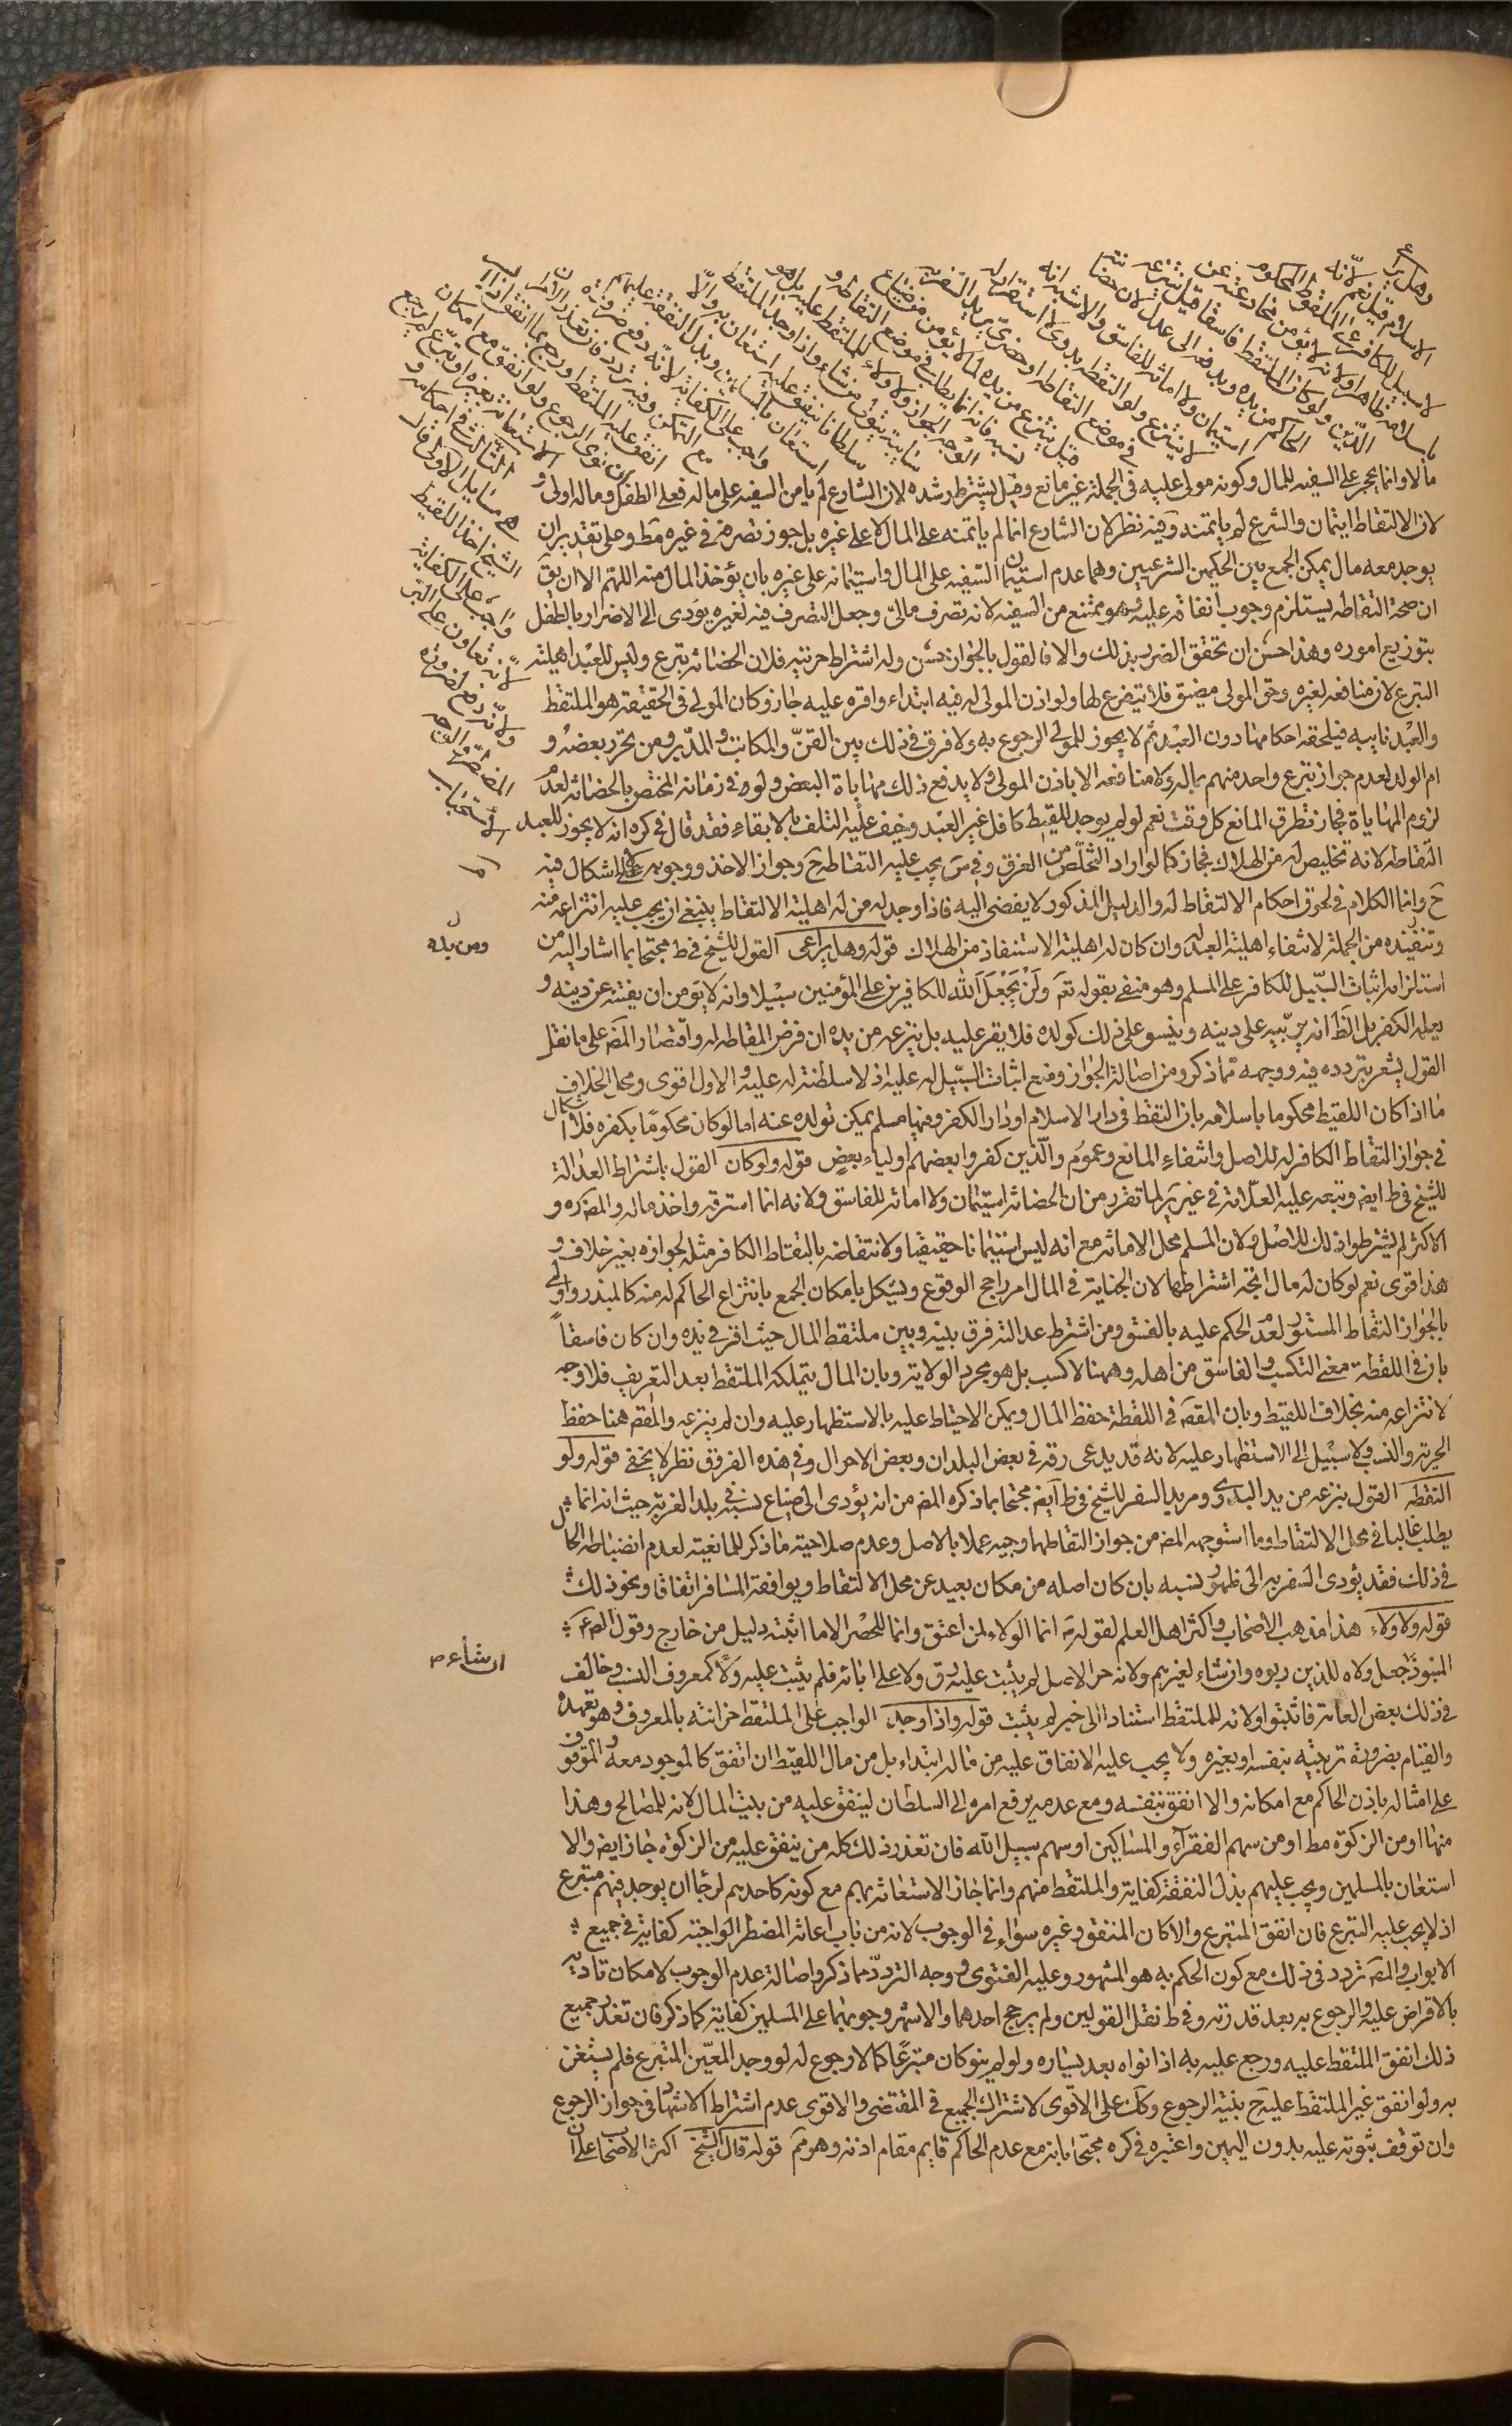 وهل يراعى
الاسلام قيل نعم لانه
لا سبيل للكافر على الملقوط المحكوم
باسلامه ظاهرا ولانه لا يؤمن مخادعته عن
الدين ولو كان الملتقط فاسقا قيل ينتزعه
الحاكم من يده ويدفعه الى عدل لان حضانته
استيمان ولا امانة للفاسق والاشبه انه
لا ينتزع ولو التقطه بدوي لا استقرار له
في موضع التقاطه او حضري يريد السفر به
قيل ينتزع من يده لما لا يؤمن من ضياع
نسبه فانه انما يطلب في موضع التقاطه و
الوجه الجواز ولا ولاء للملتقط عليه بل هو
سايبة يتولى من شاء واذا وجد الملتقط
سلطانا ينفق عليه استعان به والا
استعان بالمسلمين وبذل النفقة عليهم
واجب على الكفاية لانه دفع ضرورة
مع التمكن وفيه تردد فان تعذر الامران
انفق عليه الملتقط ورجع بما انفق اذا ايسر
ان نوى الرجوع ولو انفق مع امكان
الاستعانة بغيره او تبرع لم يرجع
الثالث في احكامه و
هي مسايل الاولى قال
الشيخ اخذ اللقيط
واجب على الكفاية
لانه تعاون على البر
ولانه دفع لضرورة
المضطر والوجه
الاستحباب
مالا وانما يحجر على السفيه للمال وكونه مولى عليه في الجملة غير مانع وقيل يشترط رشده لان الشارع لم يامن السفيه على ماله فعلى الطفل وماله اولى و
لان الالتقاط ايتمان والشرع لم ياتمنه وفيه نظر لان الشارع انما لم ياتمنه على المال لا على غيره بل جوز تصرفه في غيره مط وعلى تقدير ان
يوجد معه مال يمكن الجمع بين الحكمين الشرعيين وهما عدم استيمان السفيه على المال واستيمانه على غيره بان يؤخذ المال منه اللهم الا ان يق
ان صحة التقاطه يستلزم وجوب انفاقه عليه وهو ممتنع من السفيه لانه تصرف مالي وجعل التصرف فيه لغيره يؤدى الى الاضرار بالطفل
بتوزيع اموره وهذا حسن ان تحقق الضرر بذلك والا فالقول بالجواز حسن وله اشتراط حريته فلان الحضانة تبرع وليس للعبد اهلية
التبرع لان منافعه لغيره وحق المولى مضيق فلا يتفرغ لها ولو اذن المولى له فيه ابتداء واقره عليه جاز وكان المولى في الحقيقة هو الملتقط
والعبد نايبه فيلحقه احكامها دون العبد ثم لا يجوز للمولى الرجوع به ولا فرق في ذلك بين القن والمكاتب والمدبر ومن تحرر بعضه و
ام الولد لعدم جواز تبرع واحد منهم بماله ولا منافعه الا باذن المولى ولا يدفع ذلك مهاياة البعض ولو في زمانه المختص بالحضانة لعدم
لزوم المهاياة فجاز تطرق المانع كل وقت نعم لو لم يوجد للقيط كافل غير العبد وخيف عليه التلف بالابقاء فقد قال في كره انه لا يجوز للعبد
التقاطه لانه تخليص له من الهلاك فجاز كما لو اراد التخلص من الغرق وفي س يجب عليه التقاطه ح وجواز الاخذ ووجوبه لا اشكال فيه
ح وانما الكلام في لحوق احكام الالتقاط له والدليل المذكور لا يفضى اليه فاذا وجد له من له اهلية الالتقاط ينبغي ان يجب عليه انتزاعه منه
وتنفيذه من الجملة لانتفاء اهلية العبد له وان كان له اهلية الاستنقاذ من الهلاك قوله وهل يراعى القول للشيخ في ط محتجا بما اشار اليه من
استلزامه اثبات السبيل للكافر على المسلم وهو منفى بقوله تع ولن يجعل الله للكافرين على المؤمنين سبيلا وانه لا يؤمن ان يفتنه عن دينه و
يعلمه الكفر بل الظ انه يربيه على دينه وينشو على ذلك كولده فلا يقر عليه بل ينزعه من يده ان فرض التقاطه له واقتصار المص على ما نقل
القول يشعر بتردده فيه ووجهه مما ذكر ومن اصالة الجواز ومنع اثبات السبيل له عليه اذ لا سلطنة له عليه والاول اقوى ومحل الخلاف
ما اذا كان اللقيط محكوما باسلامه بان التقط في دار الاسلام او دار الكفر وفيها مسلم يمكن تولده عنه اما لو كان محكوما بكفره فلا اشكال
في جواز التقاط الكافر له للاصل وانتفاء المانع وعموم والذين كفروا بعضهم اولياء بعض قوله ولو كان القول باشتراط العدالة
للشيخ في ط ايض وتبعه عليه العلامة في غير ير لما تقرر من ان الحضانة استيمان ولا امانة للفاسق ولانه انما استرقه واخذ ماله والمص ره و
الاكثر لم يشترطوا ذلك للاصل ولان المسلم محل الامانة مع انه ليس استيمانا حقيقيا ولانتقاضه بالتقاط الكافر مثله لجوازه بغير خلاف و
هذا اقوى نعم لو كان له مال اتجه اشتراطها لان الخيانة في المال امر راجح الوقوع ويشكل بامكان الجمع بانتزاع الحاكم له منه كالمبذر واولى
بالجواز التقاط المستور لعدم الحكم عليه بالفسق ومن اشترط عدالته فرق بينه وبين ملتقط المال حيث اقر في يده وان كان فاسقا
بان في اللقطة معنى التكسب والفاسق من اهله وههنا لا كسب بل هو مجرد الولاية وبان المال يتملكه الملتقط بعد التعريف فلا وجه
لانتزاعه منه بخلاف اللقيط وبان المقص في اللقطة حفظ المال ويمكن الاحتياط عليه بالاستظهار عليه وان لم ينزعه والمقص هنا حفظ
الحرية والنسب ولا سبيل الى الاستظهار عليه لانه قد يدعى رقه في بعض البلدان وبعض الاحوال وفي هذه الفروق نظر لا يخفى قوله ولو
التقطه القول بنزعه من يد البدوي ومريد السفر للشيخ في ط ايض محتجا بما ذكره المص من انه يؤدى الى ضياع نسبه في بلد الغربة حيث انه انما
يطلب غالبا في محل الالتقاط وما استوجهه المص من جواز التقاطهما وجيه عملا بالاصل وعدم صلاحية ما ذكر للمانعية لعدم انضباط الحال
في ذلك فقد يؤدى السفر به الى ظهور نسبه بان كان اصله من مكان بعيد عن محل الالتقاط ويوافقه المسافر اتفاقا ونحو ذلك
قوله ولا ولاء هذا مذهب الاصحاب واكثر اهل العلم لقوله ص انما الولاء لمن اعتق وانما للحصر الا ما اثبته دليل من خارج وقول الص ع
المنبوذ ان شاء جعل ولاه للذين ربوه وان شاء لغيرهم ولانه حر الاصل لم يثبت عليه رق ولا على ابائه فلم يثبت عليه ولاء كمعروف النسب وخالف
في ذلك بعض العامة فاثبتوا ولاءه للملتقط استنادا الى خبر لم يثبت قوله واذا وجد الواجب على الملتقط حضانته بالمعروف وهو تعهده
والقيام بضرورة تربيته بنفسه او بغيره ولا يجب عليه الانفاق عليه من ماله ابتداء بل من مال اللقيط ان اتفق كالموجود معه والموقوف
على امثاله باذن الحاكم مع امكانه والا انفق بنفسه ومع عدمه يرفع امره الى السلطان لينفق عليه من بيت المال لانه للمصالح وهذا
منها او من الزكوة مط او من سهم الفقراء والمساكين او سهم سبيل الله فان تعذر ذلك كله من ينفق عليه من الزكوة جاز ايض والا
استعان بالمسلمين ويجب عليهم بذل النفقة كفاية والملتقط منهم وانما جاز الاستعانة بهم مع كونه كاحدهم لرجا ان يوجد فيهم متبرع
اذ لا يجب عليه التبرع فان اتفق المتبرع والا كان المنفق وغيره سواء في الوجوب لانه من باب اعانة المضطر الواجبة كفاية في جميع
الابواب والمص تردد في ذلك مع كون الحكم به هو المشهور وعليه الفتوى ووجه التردد مما ذكر واصالة عدم الوجوب لامكان تاديته
بالاقراض عليه والرجوع به بعد قدرته وفي ط نقل القولين ولم يرجح احدهما والاشهر وجوبها على المسلمين كفاية كما ذكر فان تعذر جميع
ذلك انفق الملتقط عليه ورجع عليه به اذا نواه بعد يساره ولو لم ينو كان متبرعا كما لا رجوع له لو وجد المعين المتبرع فلم يستعن
به ولو انفق غير الملتقط عليه ح بنية الرجوع وكك على الاقوى لاشتراك الجميع في المقتضى والاقوى عدم اشتراط الاشهاد في جواز الرجوع
وان توقف ثبوته عليه بدون اليمين واعتبره في كره محتجا بانه مع عدم الحاكم قايم مقام اذنه وهو مم قوله قال الشيخ اكثر الاصحاب على ان
ان شاء ص